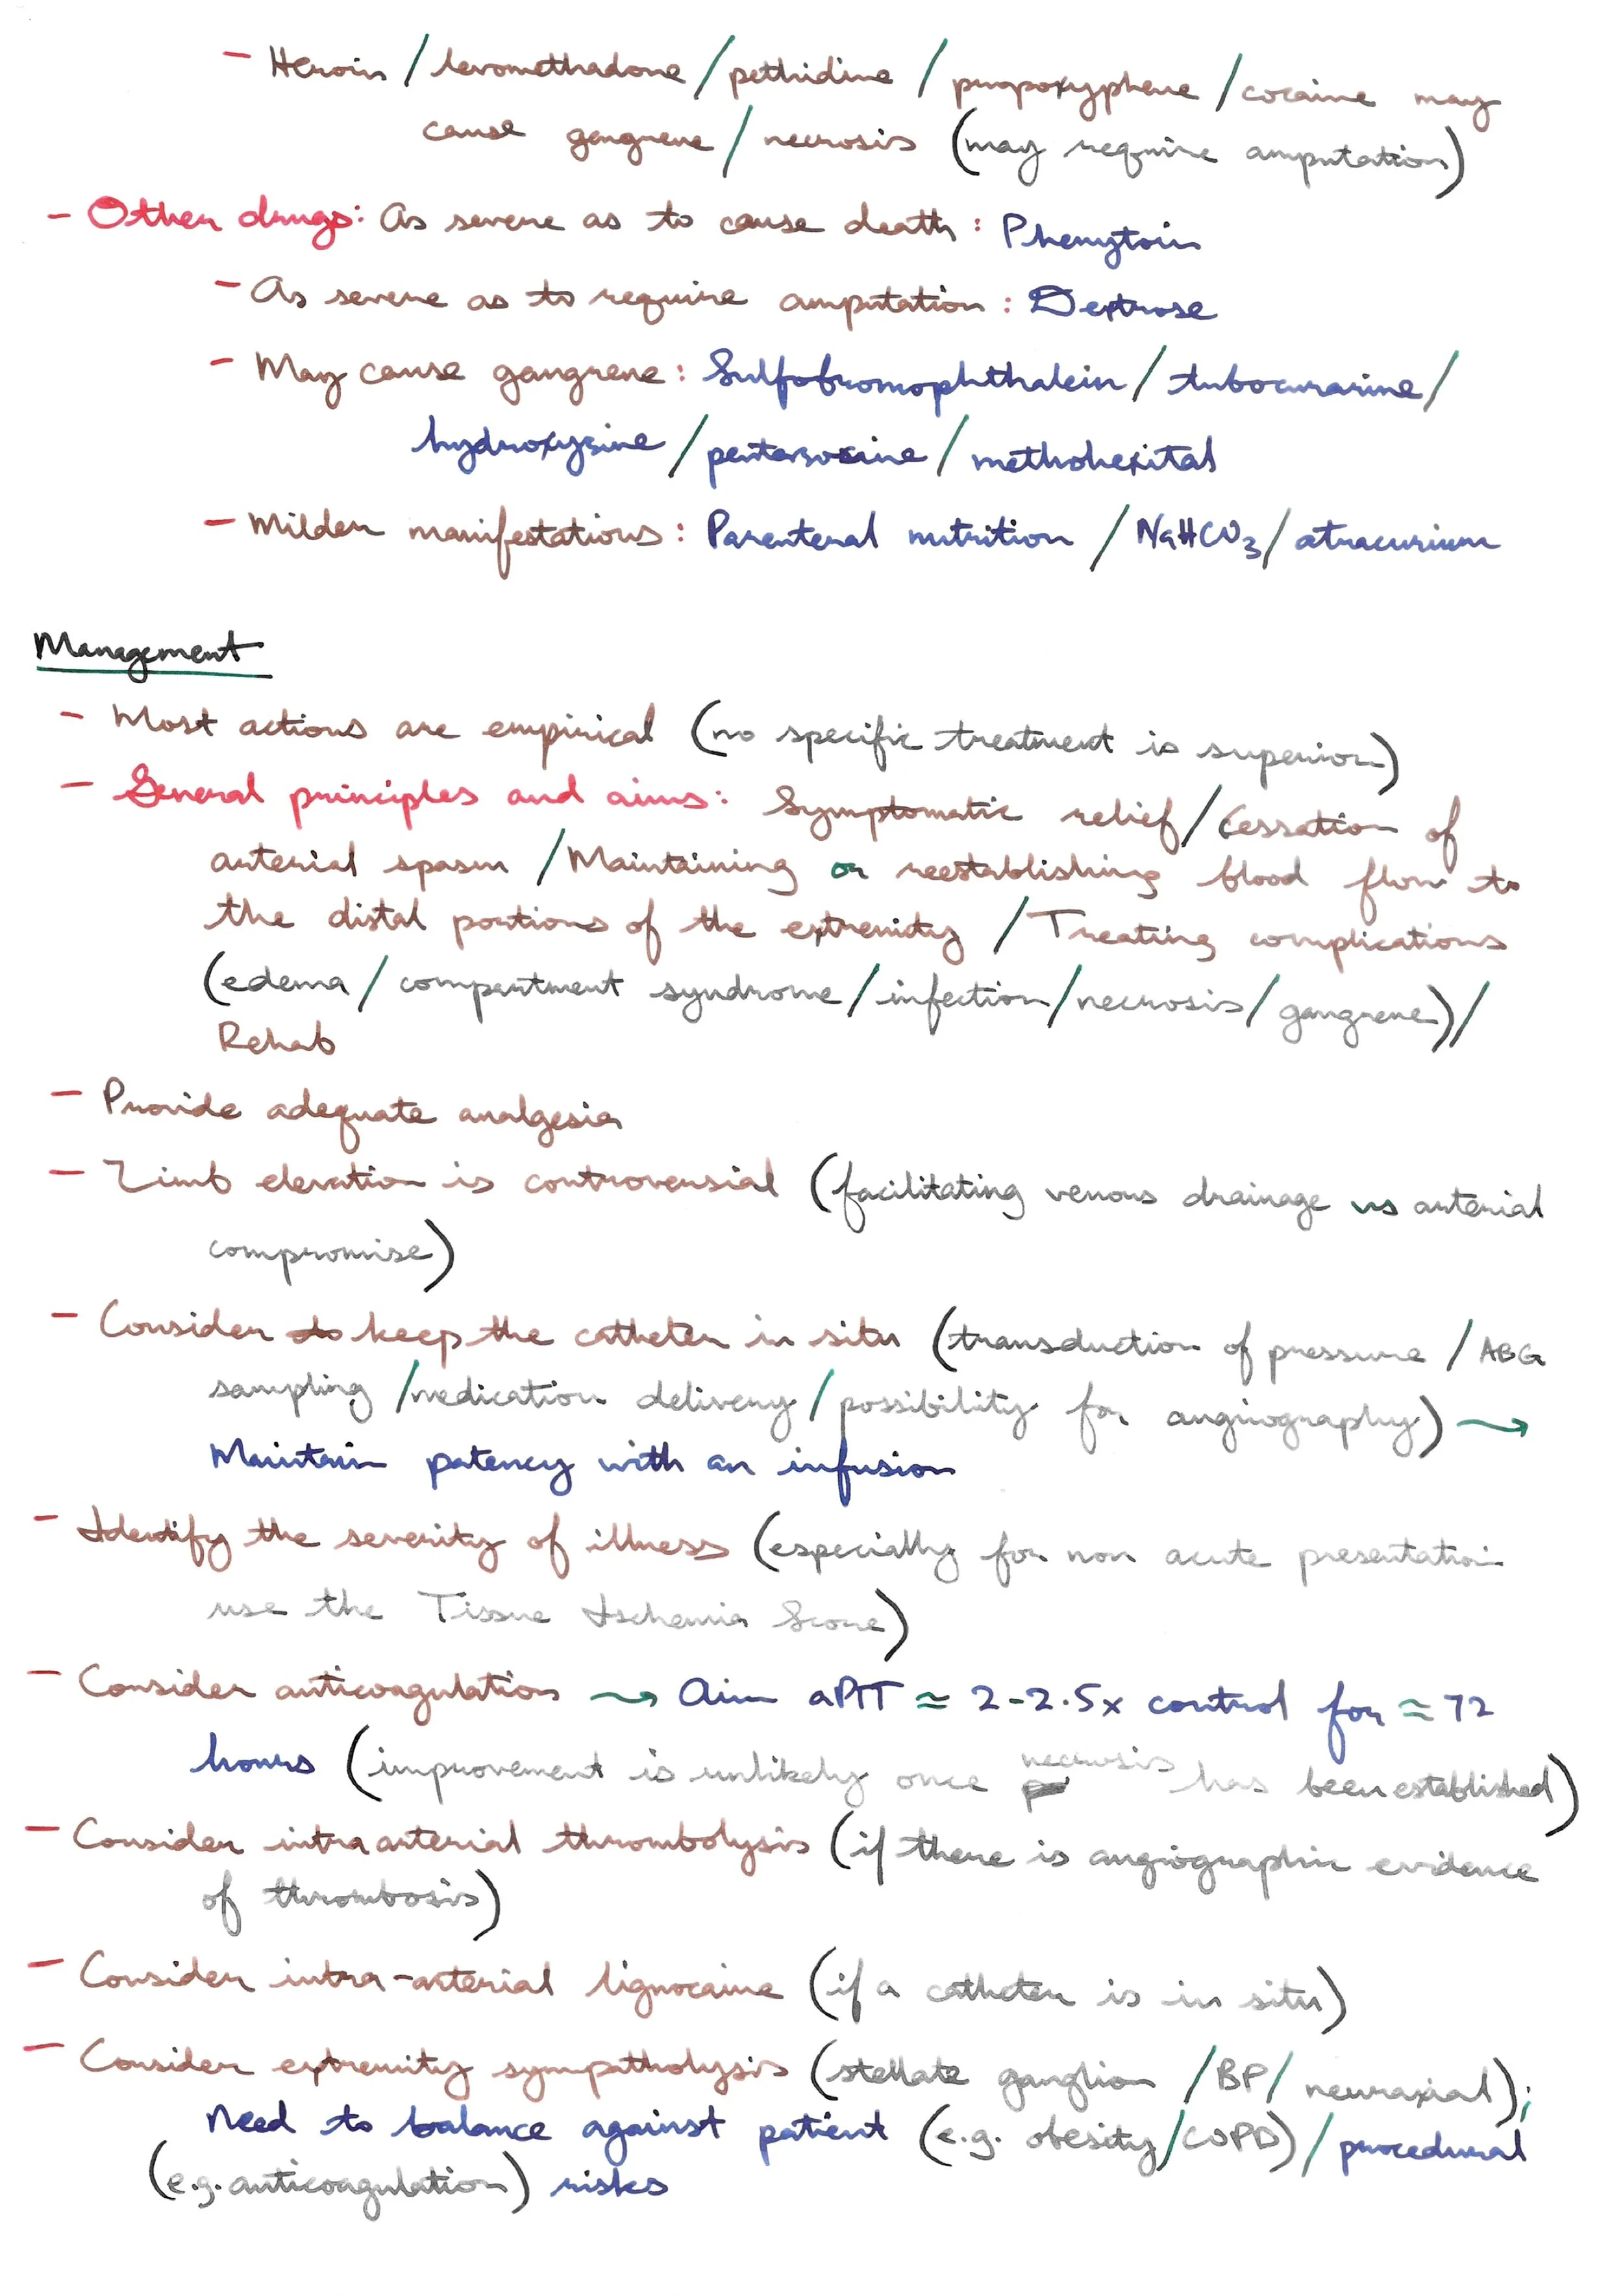 - Heroin / levomethadone / pethidine / propoxyphene / cocaine may
cause gangrene / necrosis (may require amputation)
- Other drugs: As severe as to cause death : Phenytoin
- As severe as to require amputation : Dextrose
- May cause gangrene : Sulfobromophthalein / tubocurarine /
hydroxyzine / pentazocine / methohexital
- Milder manifestations : Parenteral nutrition / NaHCO3 / atracurium
Management
- Most actions are empirical (no specific treatment is superior)
- General principles and aims: Symptomatic relief / Cessation of
arterial spasm / Maintaining or reestablishing blood flow to
the distal portions of the extremity / Treating complications
(edema / compartment syndrome / infection / necrosis / gangrene) /
Rehab
- Provide adequate analgesia
- Limb elevation is controversial (facilitating venous drainage vs arterial
compromise)
- Consider to keep the catheter in situ (transduction of pressure / ABG
sampling / medication delivery / possibility for angiography) →
Maintain patency with an infusion
- Identify the severity of illness (especially for non acute presentation
use the Tissue Ischemia Score)
- Consider anticoagulation → Aim aPTT ≈ 2-2.5x control for ≈ 72
hours (improvement is unlikely once necrosis has been established)
- Consider intraarterial thrombolysis (if there is angiographic evidence
of thrombosis)
- Consider intra-arterial lignocaine (if a catheter is in situ)
- Consider extremity sympatholysis (stellate ganglion / BP / neuraxial);
Need to balance against patient (e.g. obesity / COPD) / procedural
(e.g. anticoagulation) risks